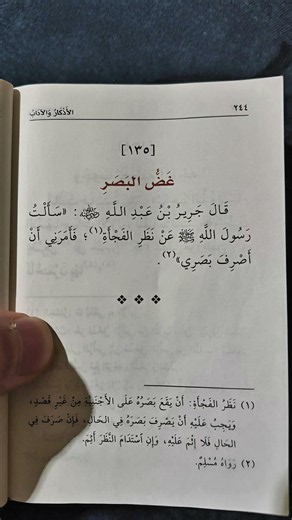 ٢٤٤
الأَذْكَارُ وَالآدَابُ
[١٣٥]
غَضُّ البَصَرِ
قَالَ جَرِيرُ بْنُ عَبْدِ اللَّهِ رضي الله عنه: «سَأَلْتُ
رَسُولَ اللَّهِ ﷺ عَنْ نَظَرِ الفَجْأَةِ(١)؛ فَأَمَرَنِي أَنْ
أَصْرِفَ بَصَرِي»(٢).
(١) نَظَرُ الفَجْأَةِ: أَنْ يَقَعَ بَصَرُهُ عَلَى الأَجْنَبِيَّةِ مِنْ غَيْرِ قَصْدٍ،
وَيَجِبُ عَلَيْهِ أَنْ يَصْرِفَ بَصَرَهُ فِي الحَالِ، فَإِنْ صَرَفَ فِي
الحَالِ فَلَا إِثْمَ عَلَيْهِ، وَإِنِ اسْتَدَامَ النَّظَرَ أَثِمَ.
(٢) رَوَاهُ مُسْلِمٌ.